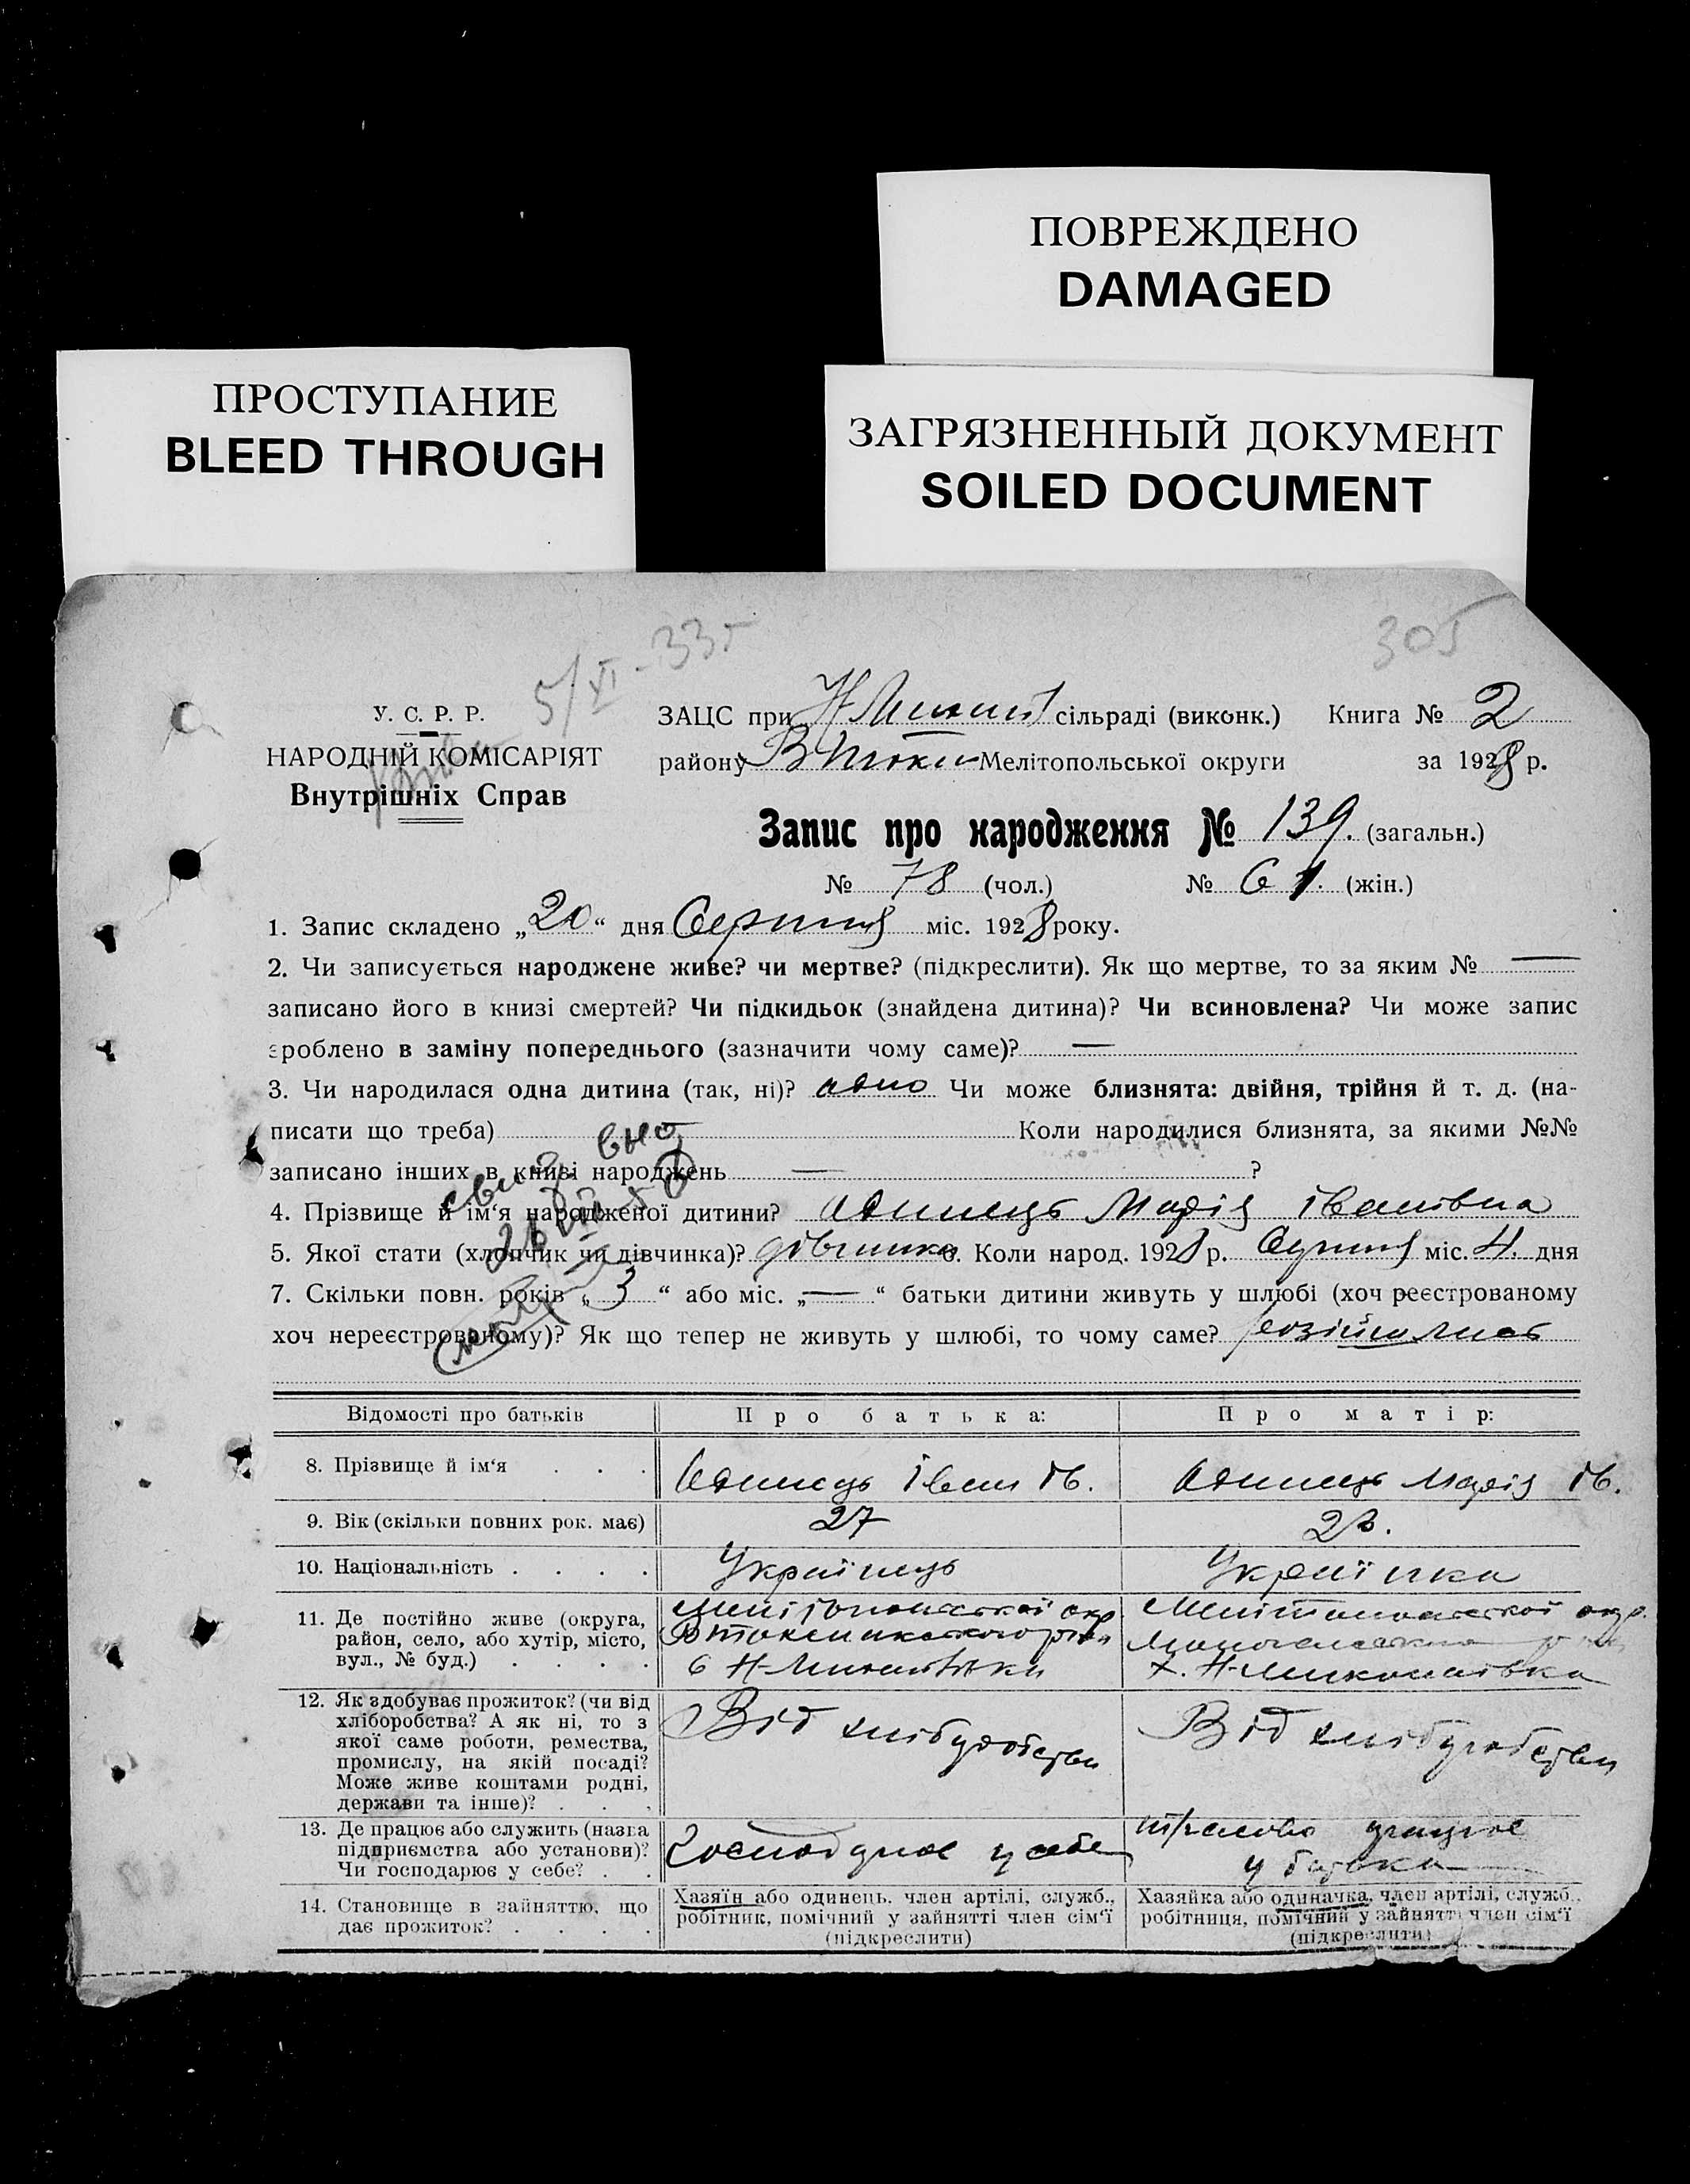 ПОВРЕЖДЕНО
DAMAGED
ПРОСТУПАНИЕ
BLEED THROUGH
ЗАГРЯЗНЕННЫЙ ДОКУМЕНТ
SOILED DOCUMENT
305
5/XI-33г
У. С. Р. Р.
НАРОДНІЙ КОМІСАРІЯТ
Внутрішніх Справ
ЗАЦС при сільраді (виконк.) Книга № 2
району Мелітопольської округи за 1928 р.
Запис про народження № 139. (загальн.)
№ 78 (чол.) № 61. (жін.)
1. Запис складено „20“ дня Серпня міс. 1928 року.
2. Чи записується народжене живе? чи мертве? (підкреслити). Як що мертве, то за яким № —
записано його в книзі смертей? Чи підкидьок (знайдена дитина)? Чи всиновлена? Чи може запис
зроблено в заміну попереднього (зазначити чому саме)? —
3. Чи народилася одна дитина (так, ні)? одно Чи може близнята: двійня, трійня й т. д. (на-
писати що треба) — Коли народилися близнята, за якими №№
записано інших в книзі народжень — ?
4. Прізвище й ім‘я народженої дитини? Одинець Марія Іванівна
5. Якої стати (хлопчик чи дівчинка)? дівчинка 6. Коли народ. 1928 р. Серпня міс. 4. дня
7. Скільки повн. років „ 3 “ або міс. „ — “ батьки дитини живуть у шлюбі (хоч реєстрованому
хоч нереєстрованому)? Як що тепер не живуть у шлюбі, то чому саме? розійшлись
Відомості про батьків Про батька: Про матір:
8. Прізвище й ім‘я . . . Одинець Іван Ів. Одинець Марія Ів.
9. Вік (скільки повних рок. має) 27 23.
10. Національність . . . . Українець Українка
11. Де постійно живе (округа,
район, село, або хутір, місто,
вул., № буд.) . . . .
Мелітопольської окр.
Мелітопольської окр.
х. Н-Миколаївка
12. Як здобуває прожиток? (чи від
хліборобства? А як ні, то з
якої саме роботи, ремества,
промислу, на якій посаді?
Може живе коштами родні,
держави та інше)? . . .
Від хліборобства
Від хліборобства
13. Де працює або служить (назва
підприємства або установи)?
Чи господарює у себе? . .
Господарює у себе
працює
у батька
14. Становище в зайняттю, що
дає прожиток? . . . .
Хазяїн або одинець, член артілі, служб.,
робітник, помічний у зайнятті член сім‘ї
(підкреслити)
Хазяйка або одиначка, член артілі, служб.,
робітниця, помічний у зайнятті член сім‘ї
(підкреслити)